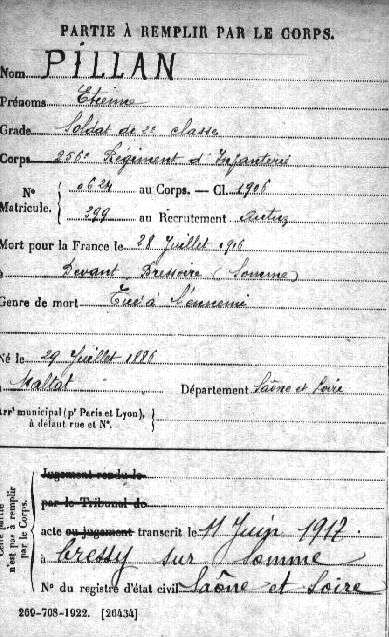 PARTIE À REMPLIR PAR LE CORPS.
Nom PILLAN
Prénoms Etienne
Grade Soldat de 2e classe
Corps 256e Régiment d'Infanterie
N° Matricule. { 0624 au Corps. — Cl. 1906
299 au Recrutement Autun
Mort pour la France le 28 Juillet 1916
à Devant Bressoire (Somme)
Genre de mort Tué à l'ennemi
Né le 29 Juillet 1886
à Maltat Département Saône et Loire
Arrt municipal (pr Paris et Lyon), à défaut rue et N°. }
Cette partie n'est pas à remplir par le Corps.
Jugement rendu le
par le Tribunal de
acte ou jugement transcrit le 11 Juin 1917
à Cressy sur Somme
N° du registre d'état civil Saône et Loire
269-708-1922. [26434]